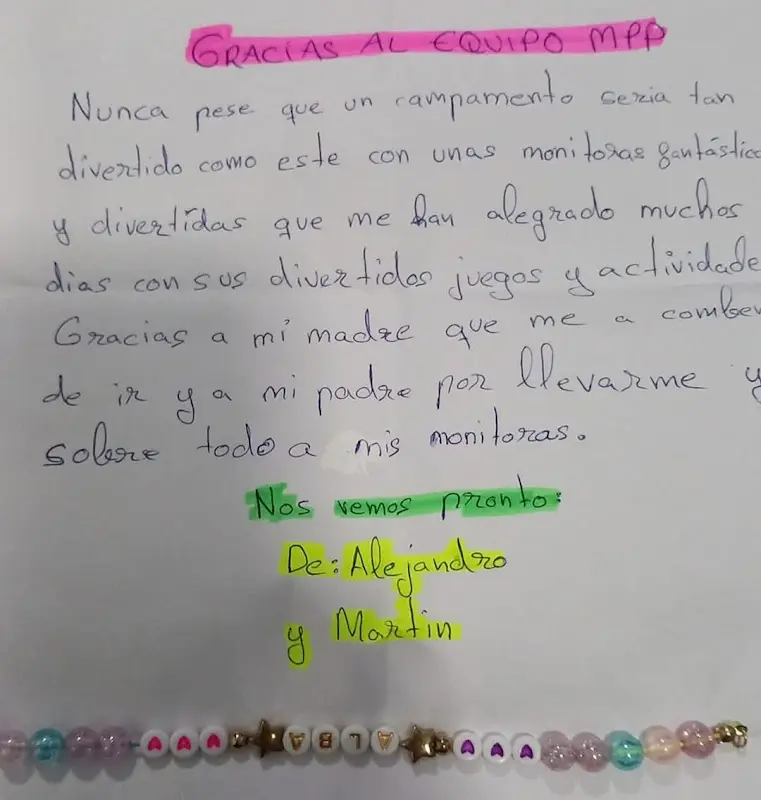 GRACIAS AL EQUIPO MPP
Nunca pese que un campamento seria tan
divertido como este con unas monitoras fantástica
y divertidas que me han alegrado muchos
dias con sus divertidos juegos y actividade
Gracias a mi madre que me a comben
de ir y a mi padre por llevarme y
sobre todo a mis monitoras.
Nos vemos pronto:
De: Alejandro
y Martin
ALBA